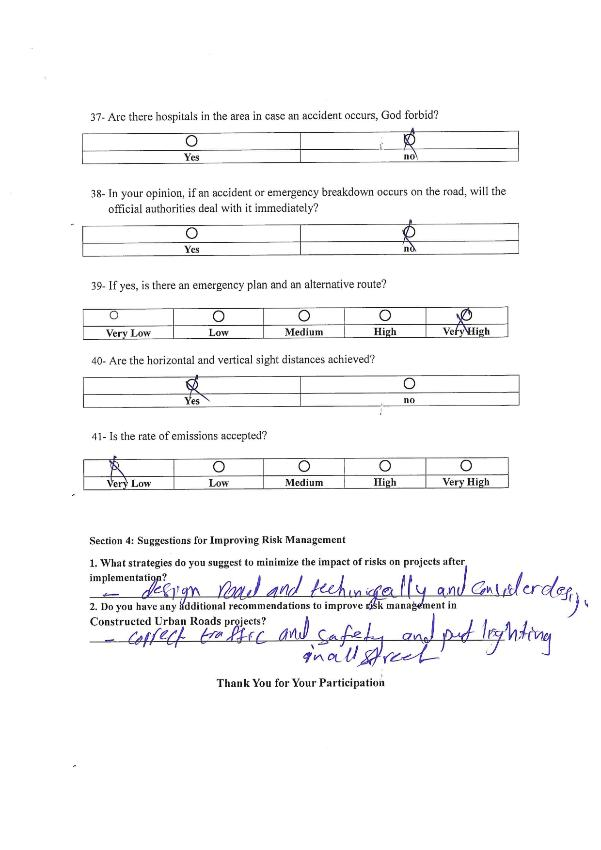 37- Are there hospitals in the area in case an accident occurs, God forbid?
Yes no
38- In your opinion, if an accident or emergency breakdown occurs on the road, will the
official authorities deal with it immediately?
Yes no
39- If yes, is there an emergency plan and an alternative route?
Very Low Low Medium High Very High
40- Are the horizontal and vertical sight distances achieved?
Yes no
41- Is the rate of emissions accepted?
Very Low Low Medium High Very High
Section 4: Suggestions for Improving Risk Management
1. What strategies do you suggest to minimize the impact of risks on projects after
implementation?
- design road and techinically and Consider
2. Do you have any additional recommendations to improve risk management in
Constructed Urban Roads projects?
- correct traffic and safety and put lighting
in all street
Thank You for Your Participation